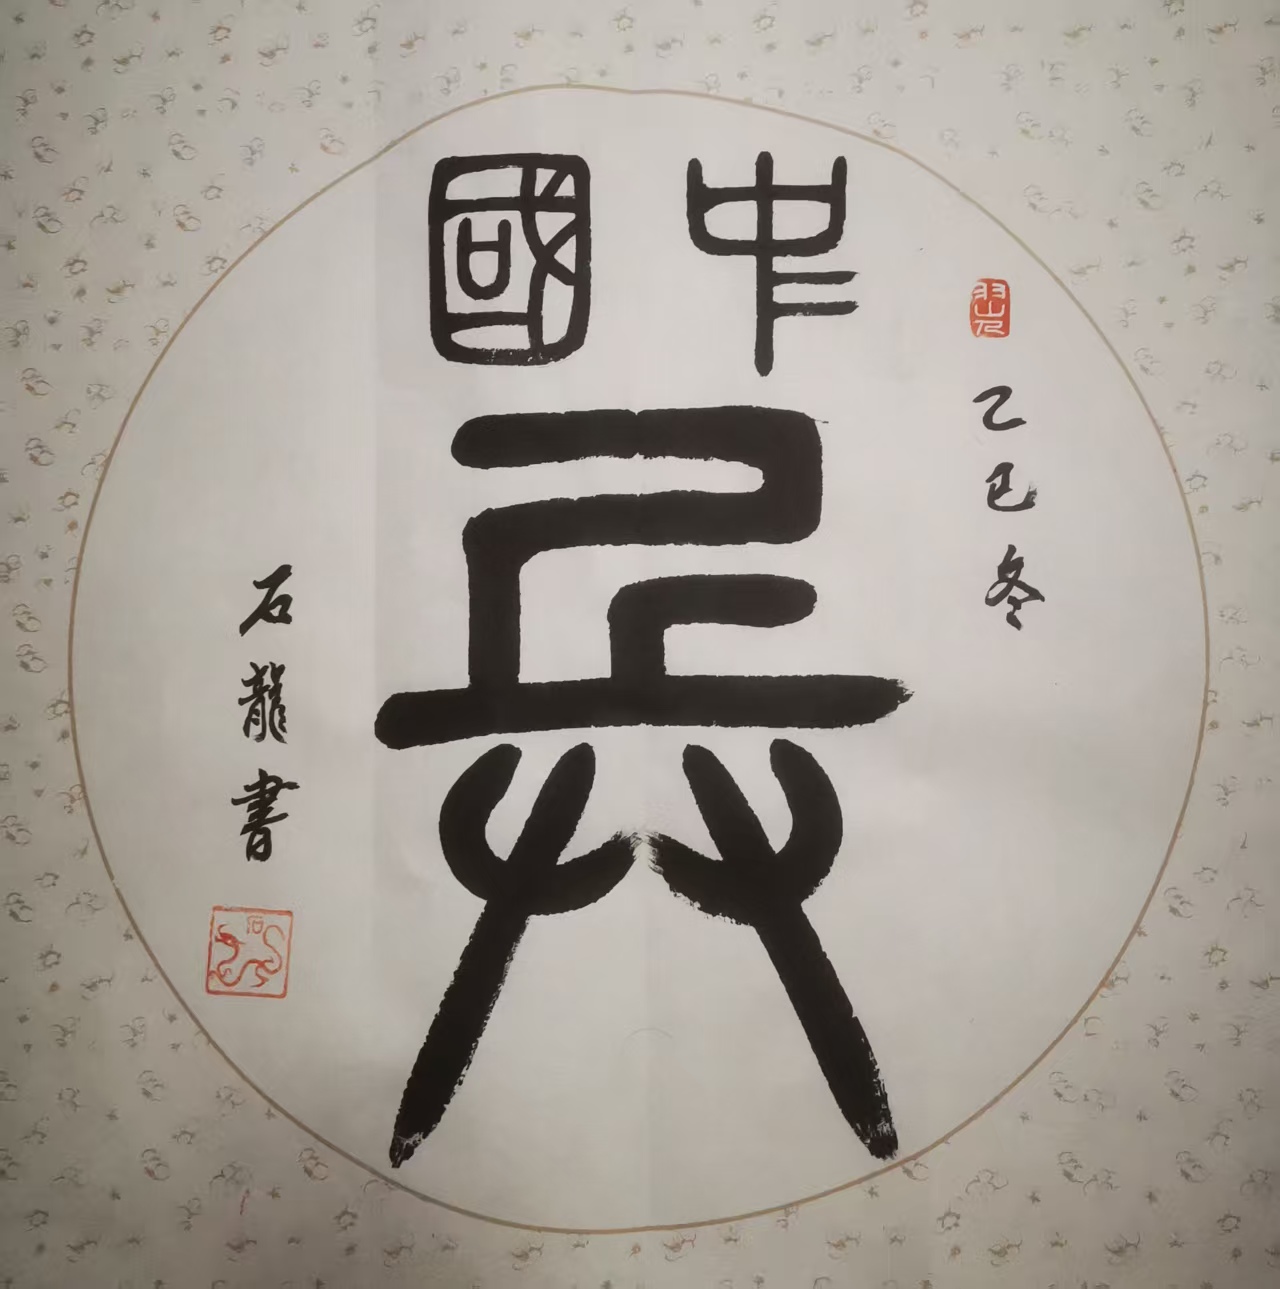 乙巳冬
中國
兵
石龍書
石